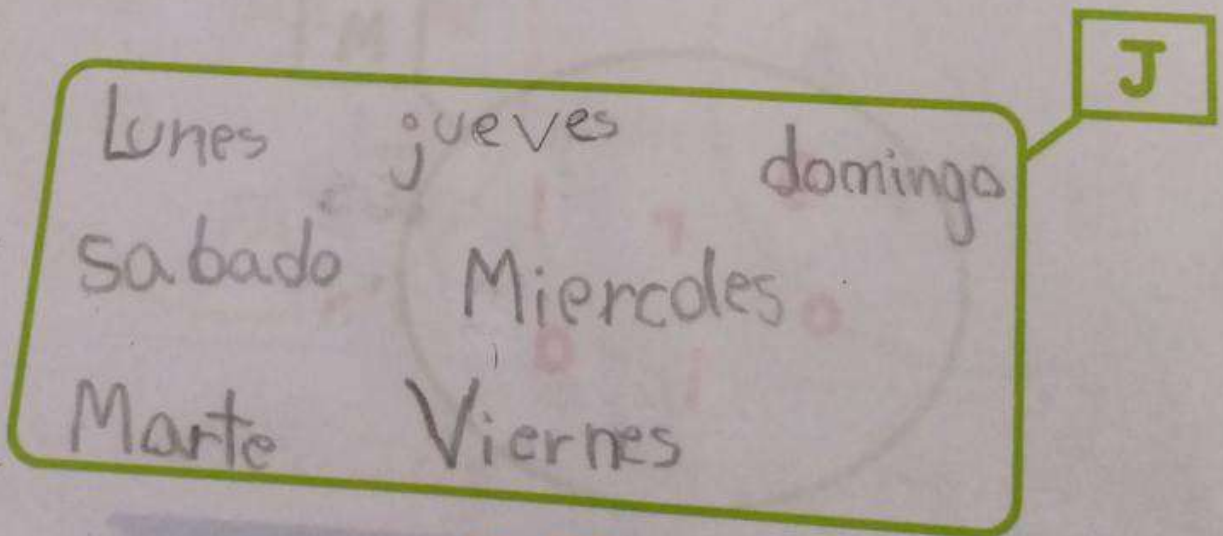 J
Lunes jueves domingo
sabado Miercoles
Marte Viernes